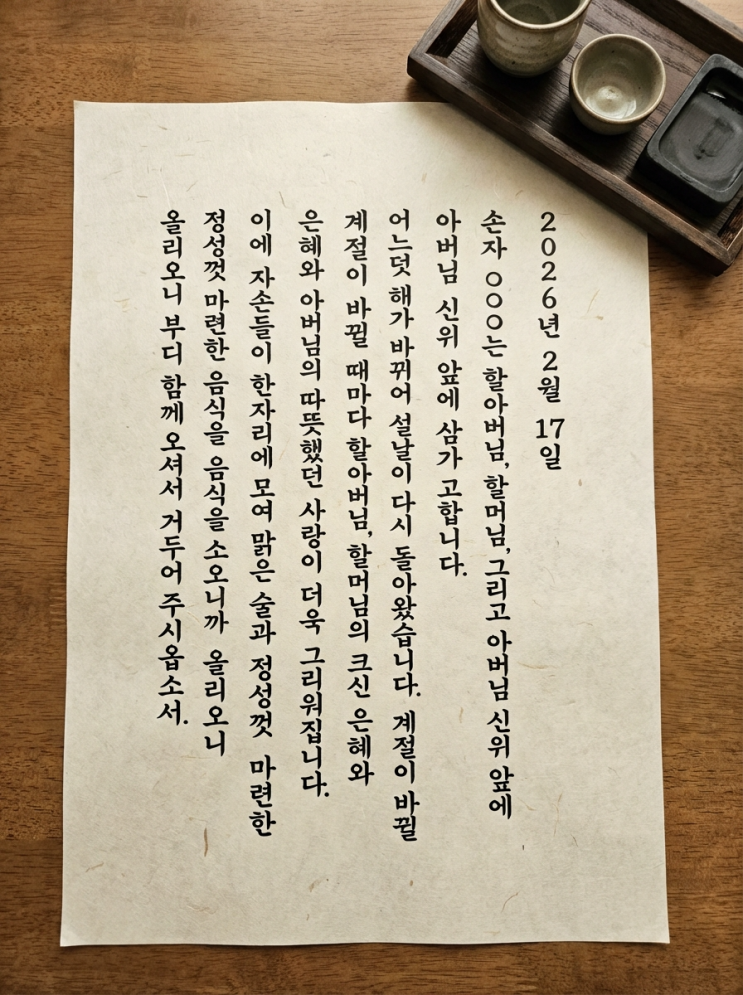 2026년 2월 17일
손자 ○○○는 할아버님, 할머님, 그리고 아버님 신위 앞에
아버님 신위 앞에 삼가 고합니다.
어느덧 해가 바뀌어 설날이 다시 돌아왔습니다. 계절이 바뀔
계절이 바뀔 때마다 할아버님, 할머님의 크신 은혜와
은혜와 아버님의 따뜻했던 사랑이 더욱 그리워집니다.
이에 자손들이 한자리에 모여 맑은 술과 정성껏 마련한
정성껏 마련한 음식을 음식을 소오니까 올리오니
올리오니 부디 함께 오셔서 거두어 주시옵소서.